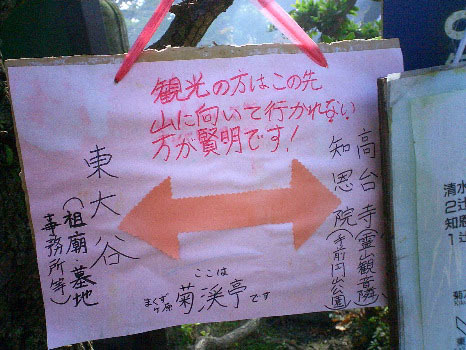 観光の方はこの先
山に向いて行かれない
方が賢明です!
高台寺(霊山観音隣)
知恩院(手前円山公園)
東大谷
(祖廟・墓地
事務所等)
ここは
まくず
ヶ原
菊溪亭です
清水
2辻
知恩
1辻